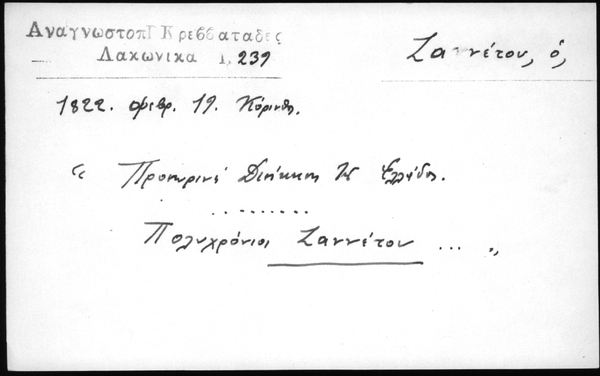 Αναγνωστοπ Κρεββαταδες
Ζαννέτου, ὁ,
Λακωνικα Ι, 239
1822. Φεβρ. 19. Κόρινθος.
"Προσωρινὴ Διοίκησις τῆς Ἑλλάδος.
.........
Πολυχρόνιος Ζαννέτου ... "